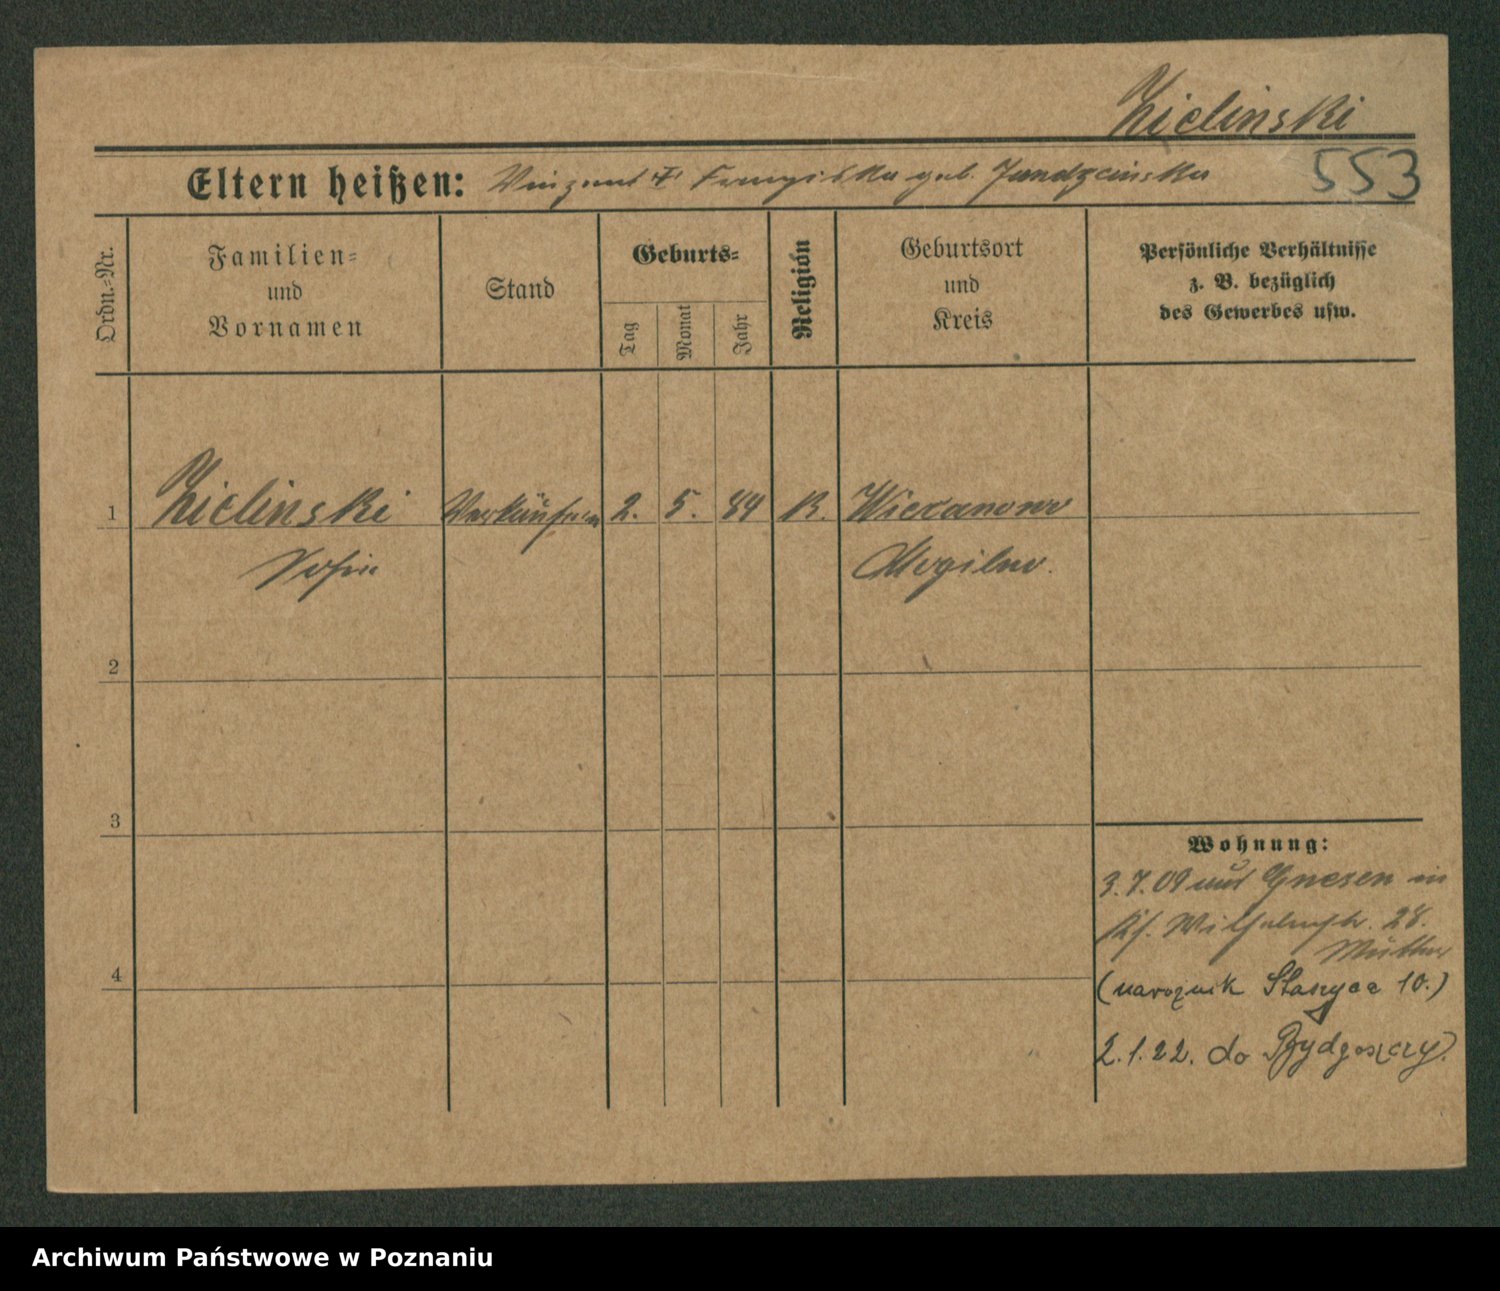 Zielinski
553
Eltern heißen: Vinzent † Franziska geb. Jendzcinska
Ordn.-Nr.
Familien-
und
Vornamen
Stand
Geburts-
Tag
Monat
Jahr
Religion
Geburtsort
und
Kreis
Persönliche Verhältnisse
z. B. bezüglich
des Gewerbes usw.
1 Zielinski Verkäuferin 2. 5. 84 K. Wiecanowo
Sofie Mogilno.
2
3
4
Wohnung:
3.7.09 aus Gnesen in
Wilhelmstr. 28.
Mutter
(narożnik Staszyca 10.)
2.1.22. do Bydgoszczy.
Archiwum Państwowe w Poznaniu